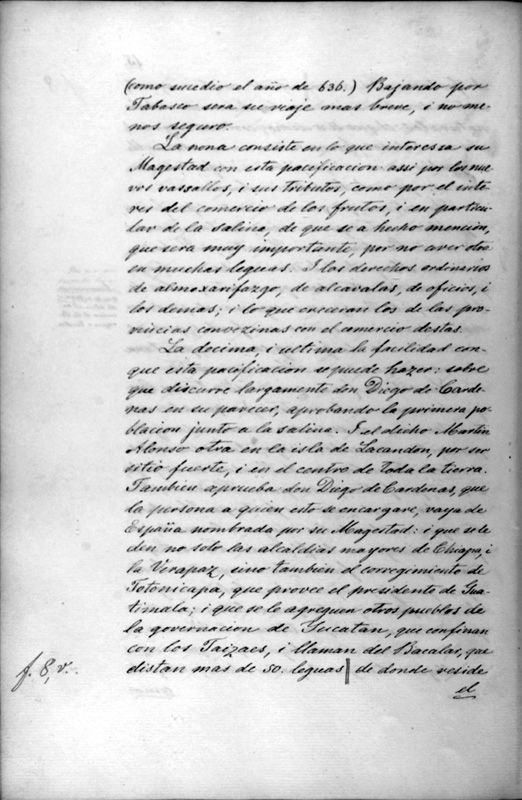 (como sucedio el año de 636.) Bajando por
Tabasco sera su viaje mas breve, i no me-
nos seguro.
La nona consiste en lo que interessa su
Magestad con esta pacificacion assi por los nue-
vos vassallos, i sus tributos, como por el inte-
res del comercio de los frutos, i en particu-
lar de la salina, de que se a hecho mencion,
que sera muy importante, por no aver otra
en muchas leguas. I los derechos ordinarios
de almoxarifazgo, de alcavalas, de oficios, i
los demas; i lo que creceran los de las pro-
vincias convezinas con el comercio destas.
La decima, i ultima la facilidad con-
que esta pacificacion se puede hazer: sobre
que discurre largamente don Diego de Carde-
nas en su parecer, aprobando la primera po-
blacion junto a la salina. I el dicho Martin
Alonso otra en la isla de Lacandon, por ser
sitio fuerte, i en el centro de toda la tierra.
Tambien aprueba don Diego de Cardenas, que
la persona a quien esto se encargare, vaya de
España nombrada por su Magestad: i que se le
den no solo las alcaldias mayores de Chiapa, i
la Verapaz, sino tambien el corregimiento de
Totonicapa, que provee el presidente de Gua-
timala; i que se le agreguen otros pueblos de
la governacion de Yucatan, que confinan
con los Taizaes, i llaman del Bacalar, que
distan mas de 50. leguas | de donde reside
f. 8, v.
el